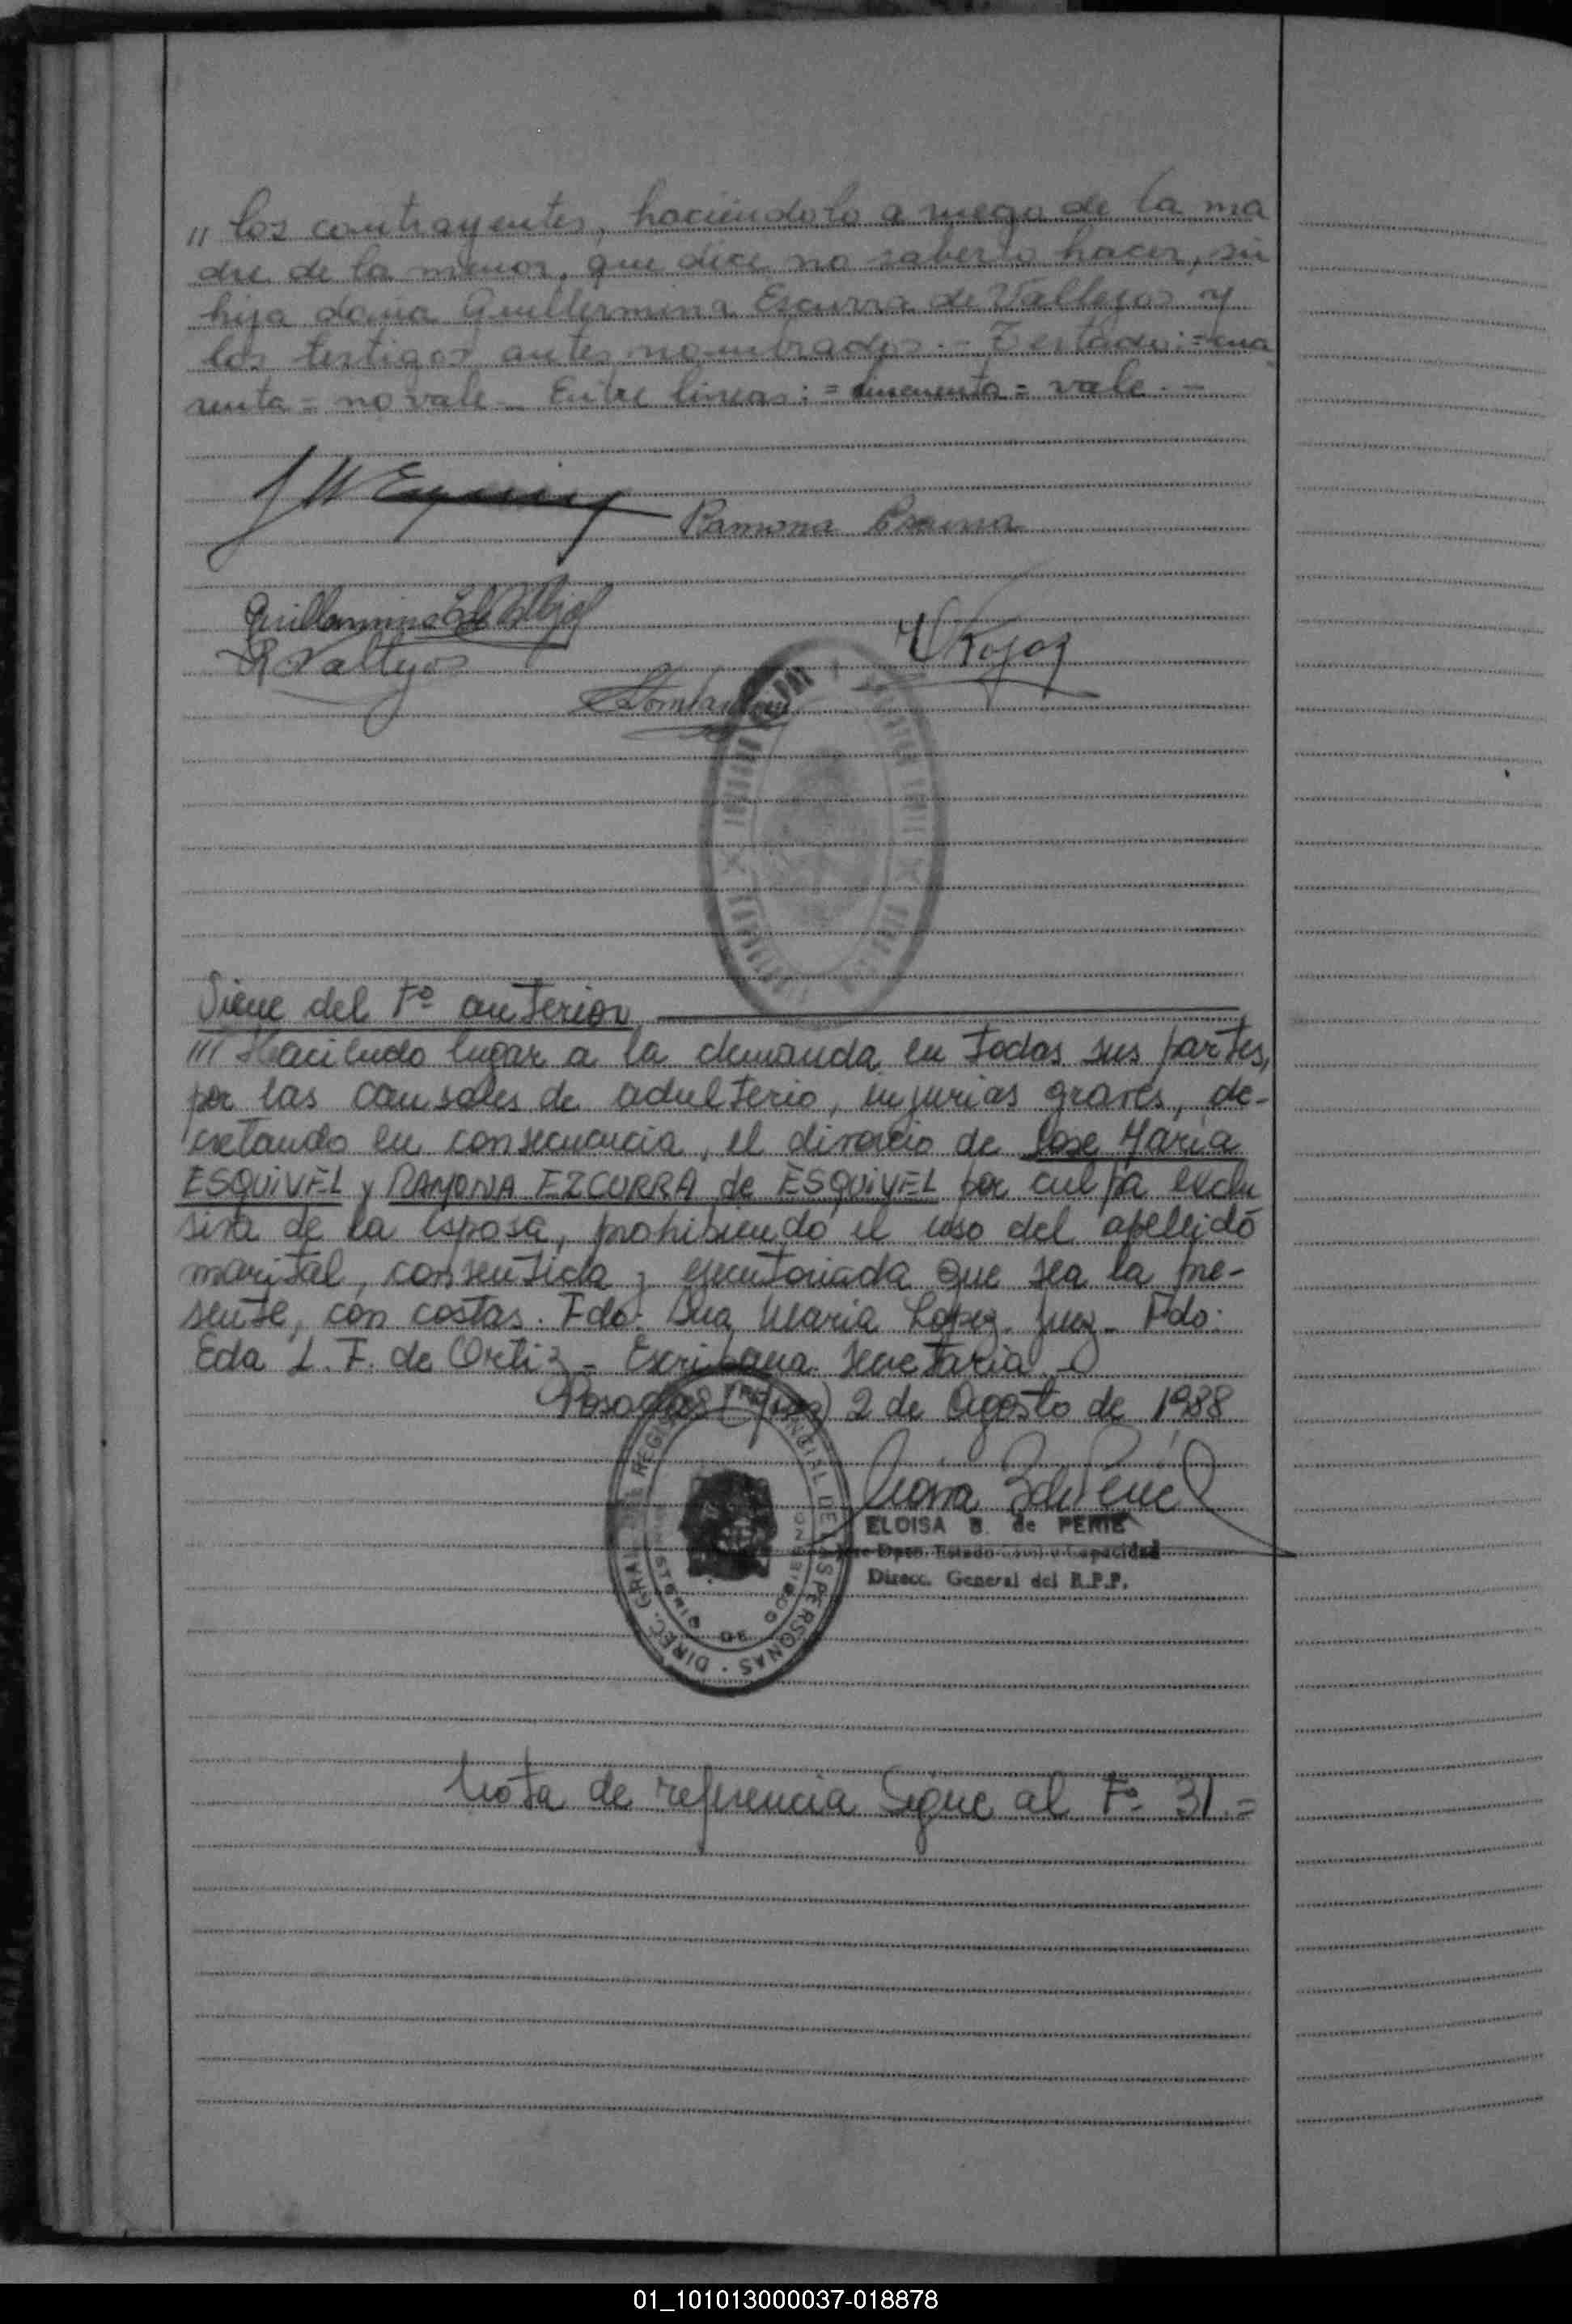 " los contrayentes, haciéndolo a ruego de la ma
dre de la menor, que dice no saberlo hacer, su
hija doña Guillermina Escurra de Vallejos y
los testigos antes nombrados.- Testado:=cua
renta = no vale - Entre lineas: = cincuenta = vale.-
Ramona Escurra
Guillermina
R Vallejos
Rojas
Viene del Fº anterior
/// Haciendo lugar a la demanda en todas sus partes,
por las causales de adulterio, injurias graves, de-
cretando en consecuencia, el divorcio de Jose Maria
ESQUIVEL y RAMONA EZCURRA de ESQUIVEL por culpa exclu
siva de la esposa, prohibiendo el uso del apellido
marital, consentida y ejecutoriada que sea la pre-
sente, con costas. Fdo. Ana Maria Lopez. Juez - Fdo:
Eda L. F. de Ortiz - Escribana Secretaria.-
Posadas (Mnes) 2 de Agosto de 1988
ELOISA B. de PERIE
Dpto. Estado Civil y Capacidad
Direcc. General del R.P.P.
DIREC. GRAL. DEL REGISTRO PROVINCIAL DE LAS PERSONAS
Nota de referencia Sigue al Fº 31.=
01_101013000037-018878